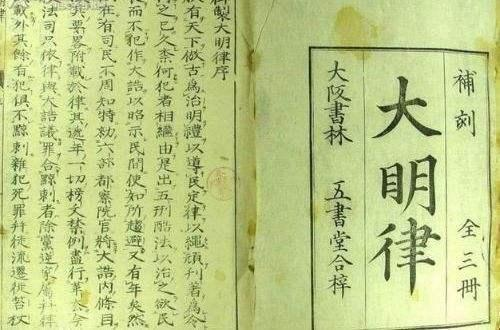 補刻 全三冊
大明律
大阪書林 五書堂合梓
御製大明律序
朕有天下倣古為治明禮以導民定律以繩頑刊著為令
行之已久柰何犯者相繼由是出五刑酷法以治之欲民
畏而不犯作大誥以昭示民間使知所趨避又有年矣然
法在有司民不周知特勑六部都察院官將大誥內條目
其要畧附載於律其遞年一切榜文禁例盡行革去今
法司只依律與大誥議罪合黥刺者除黨逆家屬并律
載外其餘有犯俱不黥刺雜犯死罪并徒流遷徙笞杖